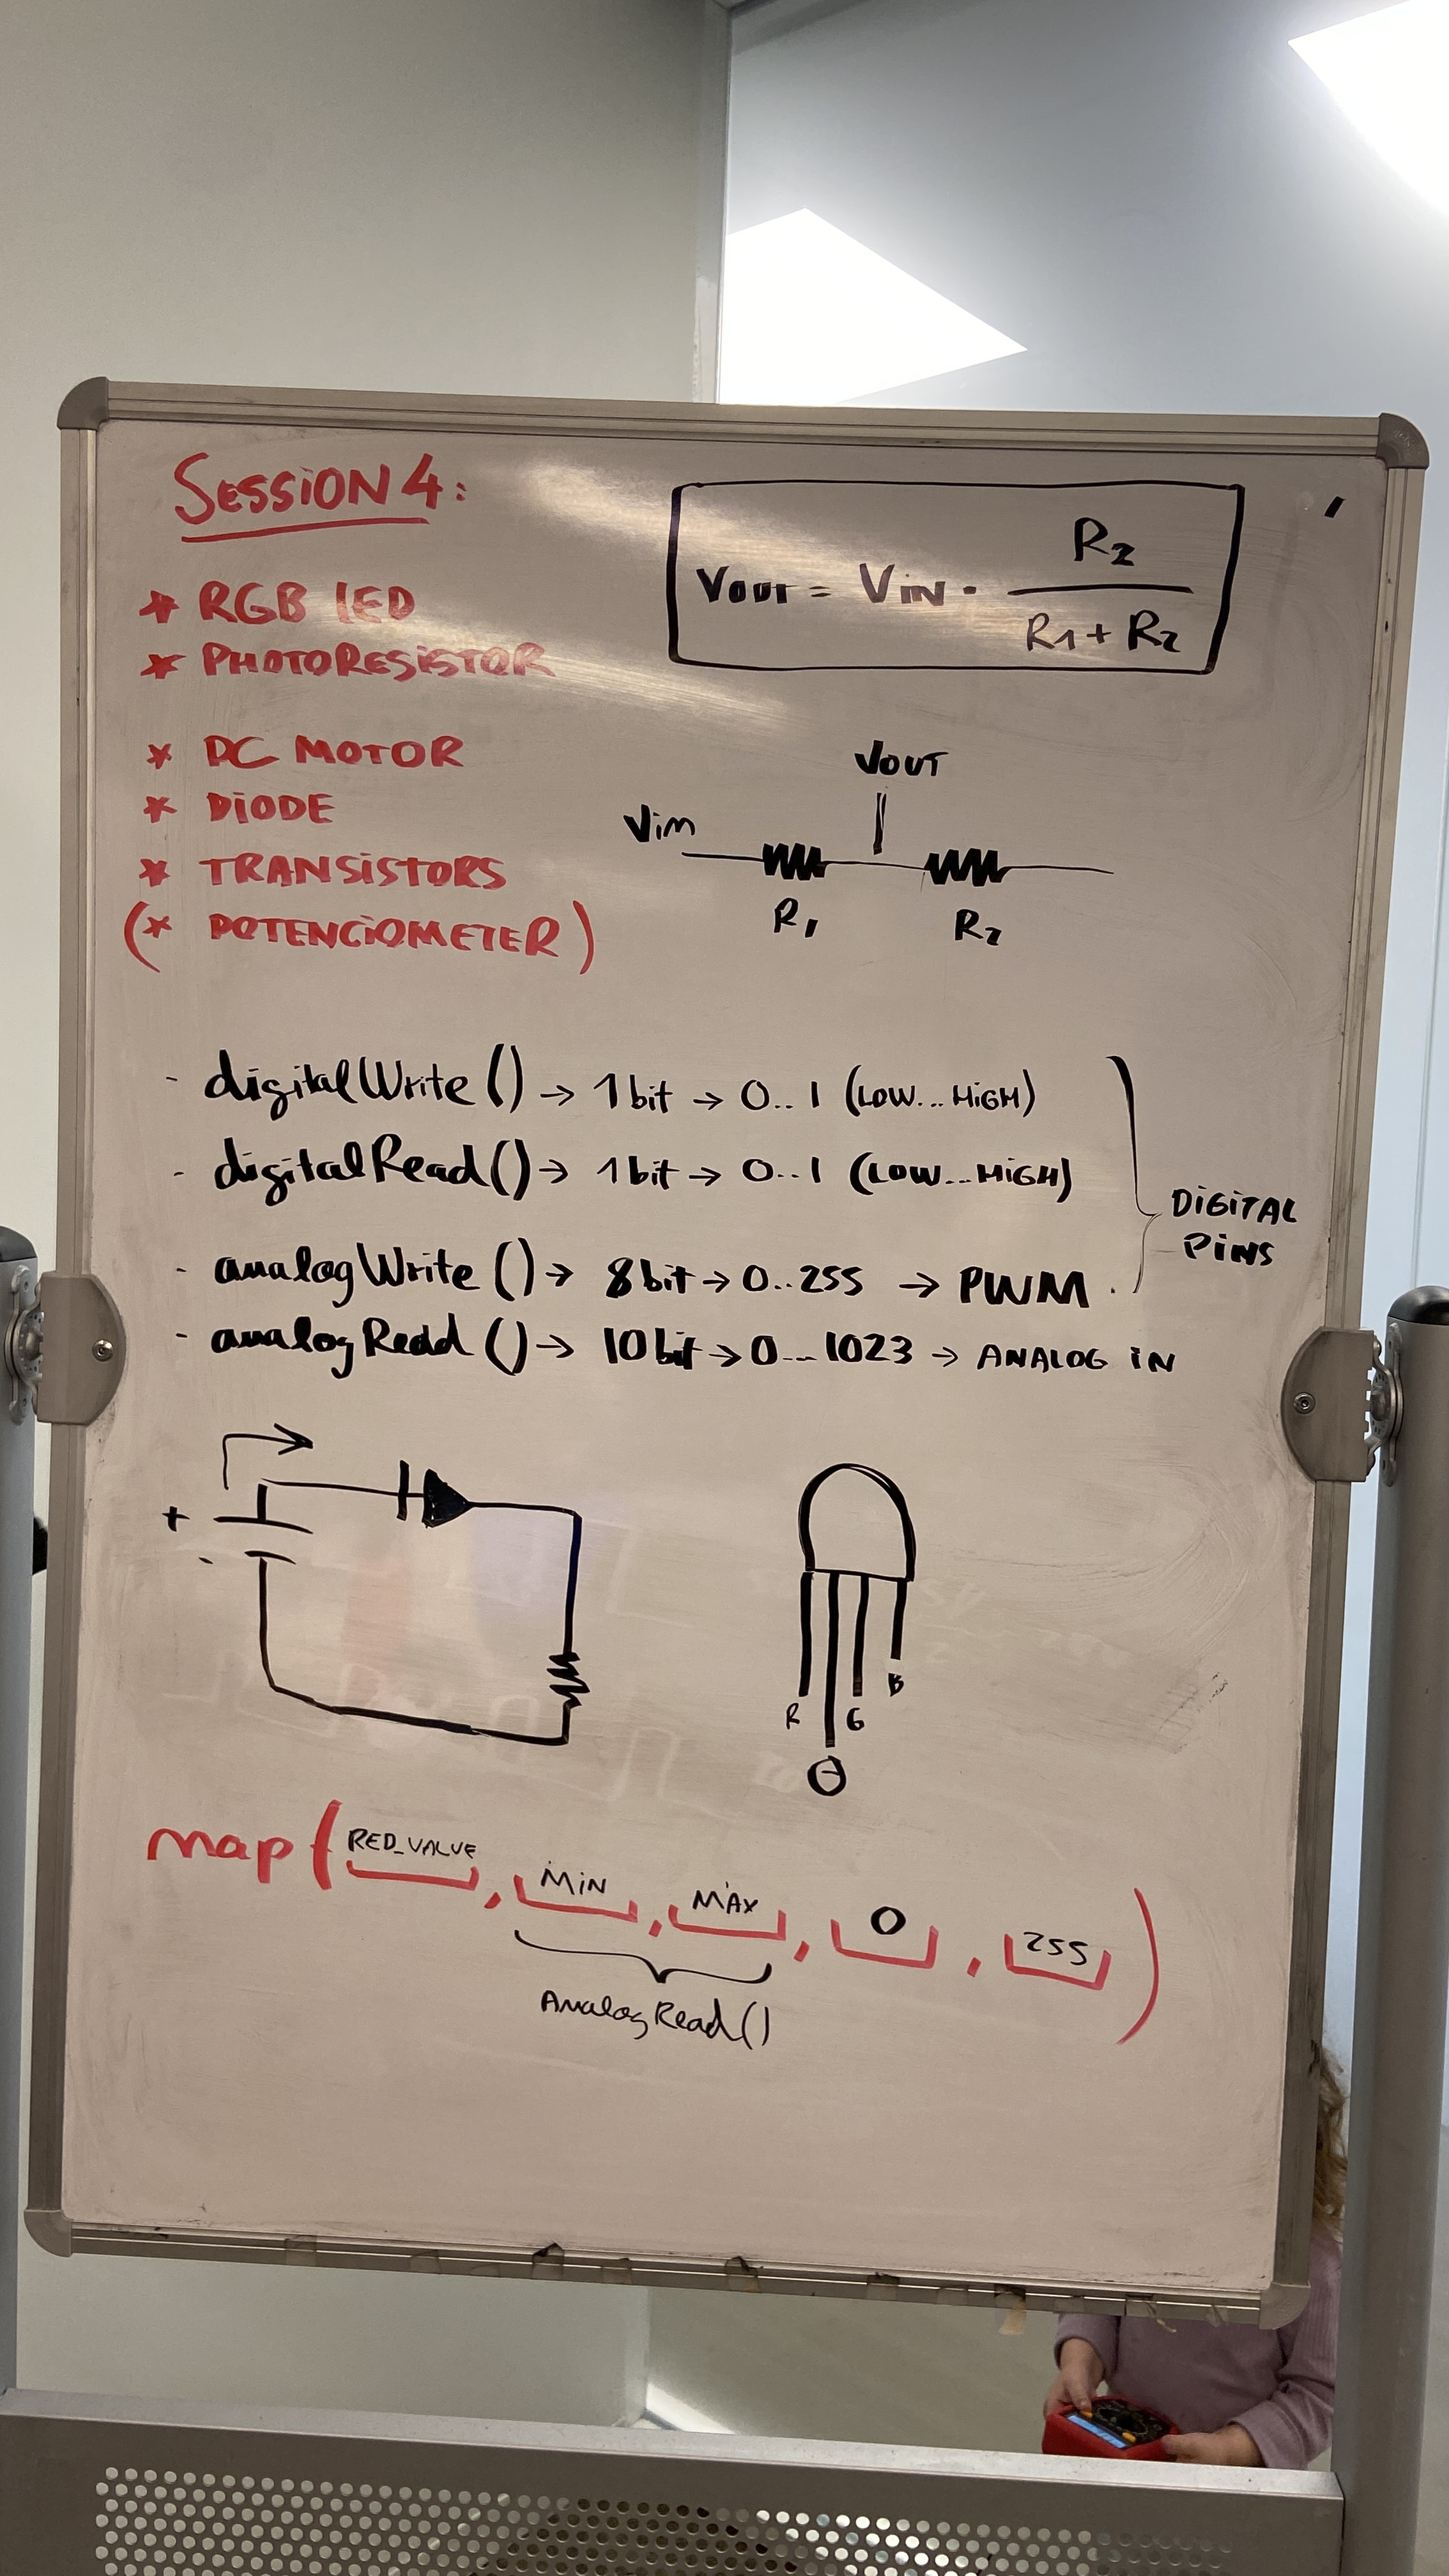 SESSION 4:
* RGB LED
* PHOTORESISTOR
* DC MOTOR
* DIODE
* TRANSISTORS
(* POTENCIOMETER)
VOUT = VIN · R2 / R1 + R2
VOUT
Vin
R1
R2
- digitalWrite() → 1 bit → 0..1 (LOW...HIGH)
- digitalRead() → 1 bit → 0..1 (LOW...HIGH)
- analogWrite() → 8 bit → 0..255 → PWM
- analogRead() → 10 bit → 0...1023 → ANALOG IN
DIGITAL
PINS
+
-
R
G
B
-
map(RED_VALUE, MIN, MAX, 0, 255)
AnalogRead()